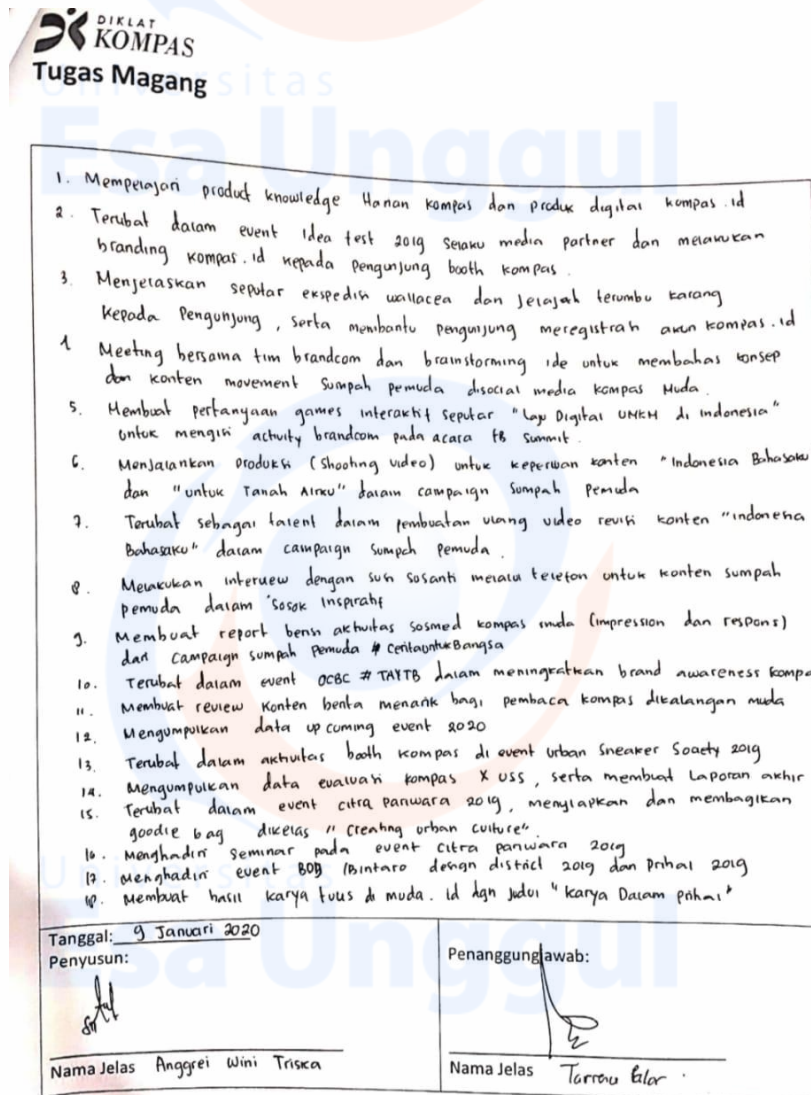 DIKLAT
KOMPAS
Tugas Magang
Universitas
Esa Unggul
1. Mempelajari product knowledge Harian Kompas dan produk digital kompas.id
2. Terlibat dalam event Idea fest 2019 selaku media partner dan melakukan
branding kompas.id kepada pengunjung booth kompas.
3. Menjelaskan seputar ekspedisi wallacea dan Jelajah terumbu karang
kepada Pengunjung, serta membantu pengunjung meregistrasi akun kompas.id
4 Meeting bersama tim brandcom dan brainstorming ide untuk membahas konsep
dan konten movement Sumpah pemuda disocial media kompas Muda.
5. Membuat pertanyaan games interaktif seputar "Laju Digital UMKM di Indonesia"
untuk mengisi activity brandcom pada acara fb Summit.
6. Menjalankan produksi (shooting video) untuk keperluan konten "Indonesia Bahasaku
dan "untuk Tanah Airku" dalam campaign Sumpah Pemuda
7. Terlibat sebagai talent dalam pembuatan ulang video revisi konten "indonesia
Bahasaku" dalam campaign sumpah pemuda.
8. Melakukan interview dengan susi sosanti melalui telefon untuk konten sumpah
pemuda dalam "Sosok Inspiratif
9. Membuat report berisi aktivitas sosmed kompas muda (impression dan respons)
dari Campaign sumpah Pemuda # CeritauntukBangsa
10. Terlibat dalam event OCBC # TAYTB dalam meningkatkan brand awareness kompa
11. Membuat review konten berita menarik bagi pembaca kompas dikalangan muda
12. Mengumpulkan data up coming event 2020
13. Terlibat dalam aktivitas booth kompas di event Urban Sneaker Society 2019
14. Mengumpulkan data evaluasi kompas X USS, serta membuat Laporan akhir
15. Terlibat dalam event citra pariwara 2019, menyiapkan dan membagikan
goodie bag dikelas "Creating urban culture".
16. Menghadiri seminar pada event citra pariwara 2019
17. Menghadiri event BDD /Bintaro design district 2019 dan Prihal 2019
18. Membuat hasil karya tulis di muda.id dgn judul "karya Dalam prihal"
Universitas
Esa Unggul
Tanggal: 9 Januari 2020
Penyusun:
Penanggungjawab:
Nama Jelas Anggrei Wini Trisica
Nama Jelas